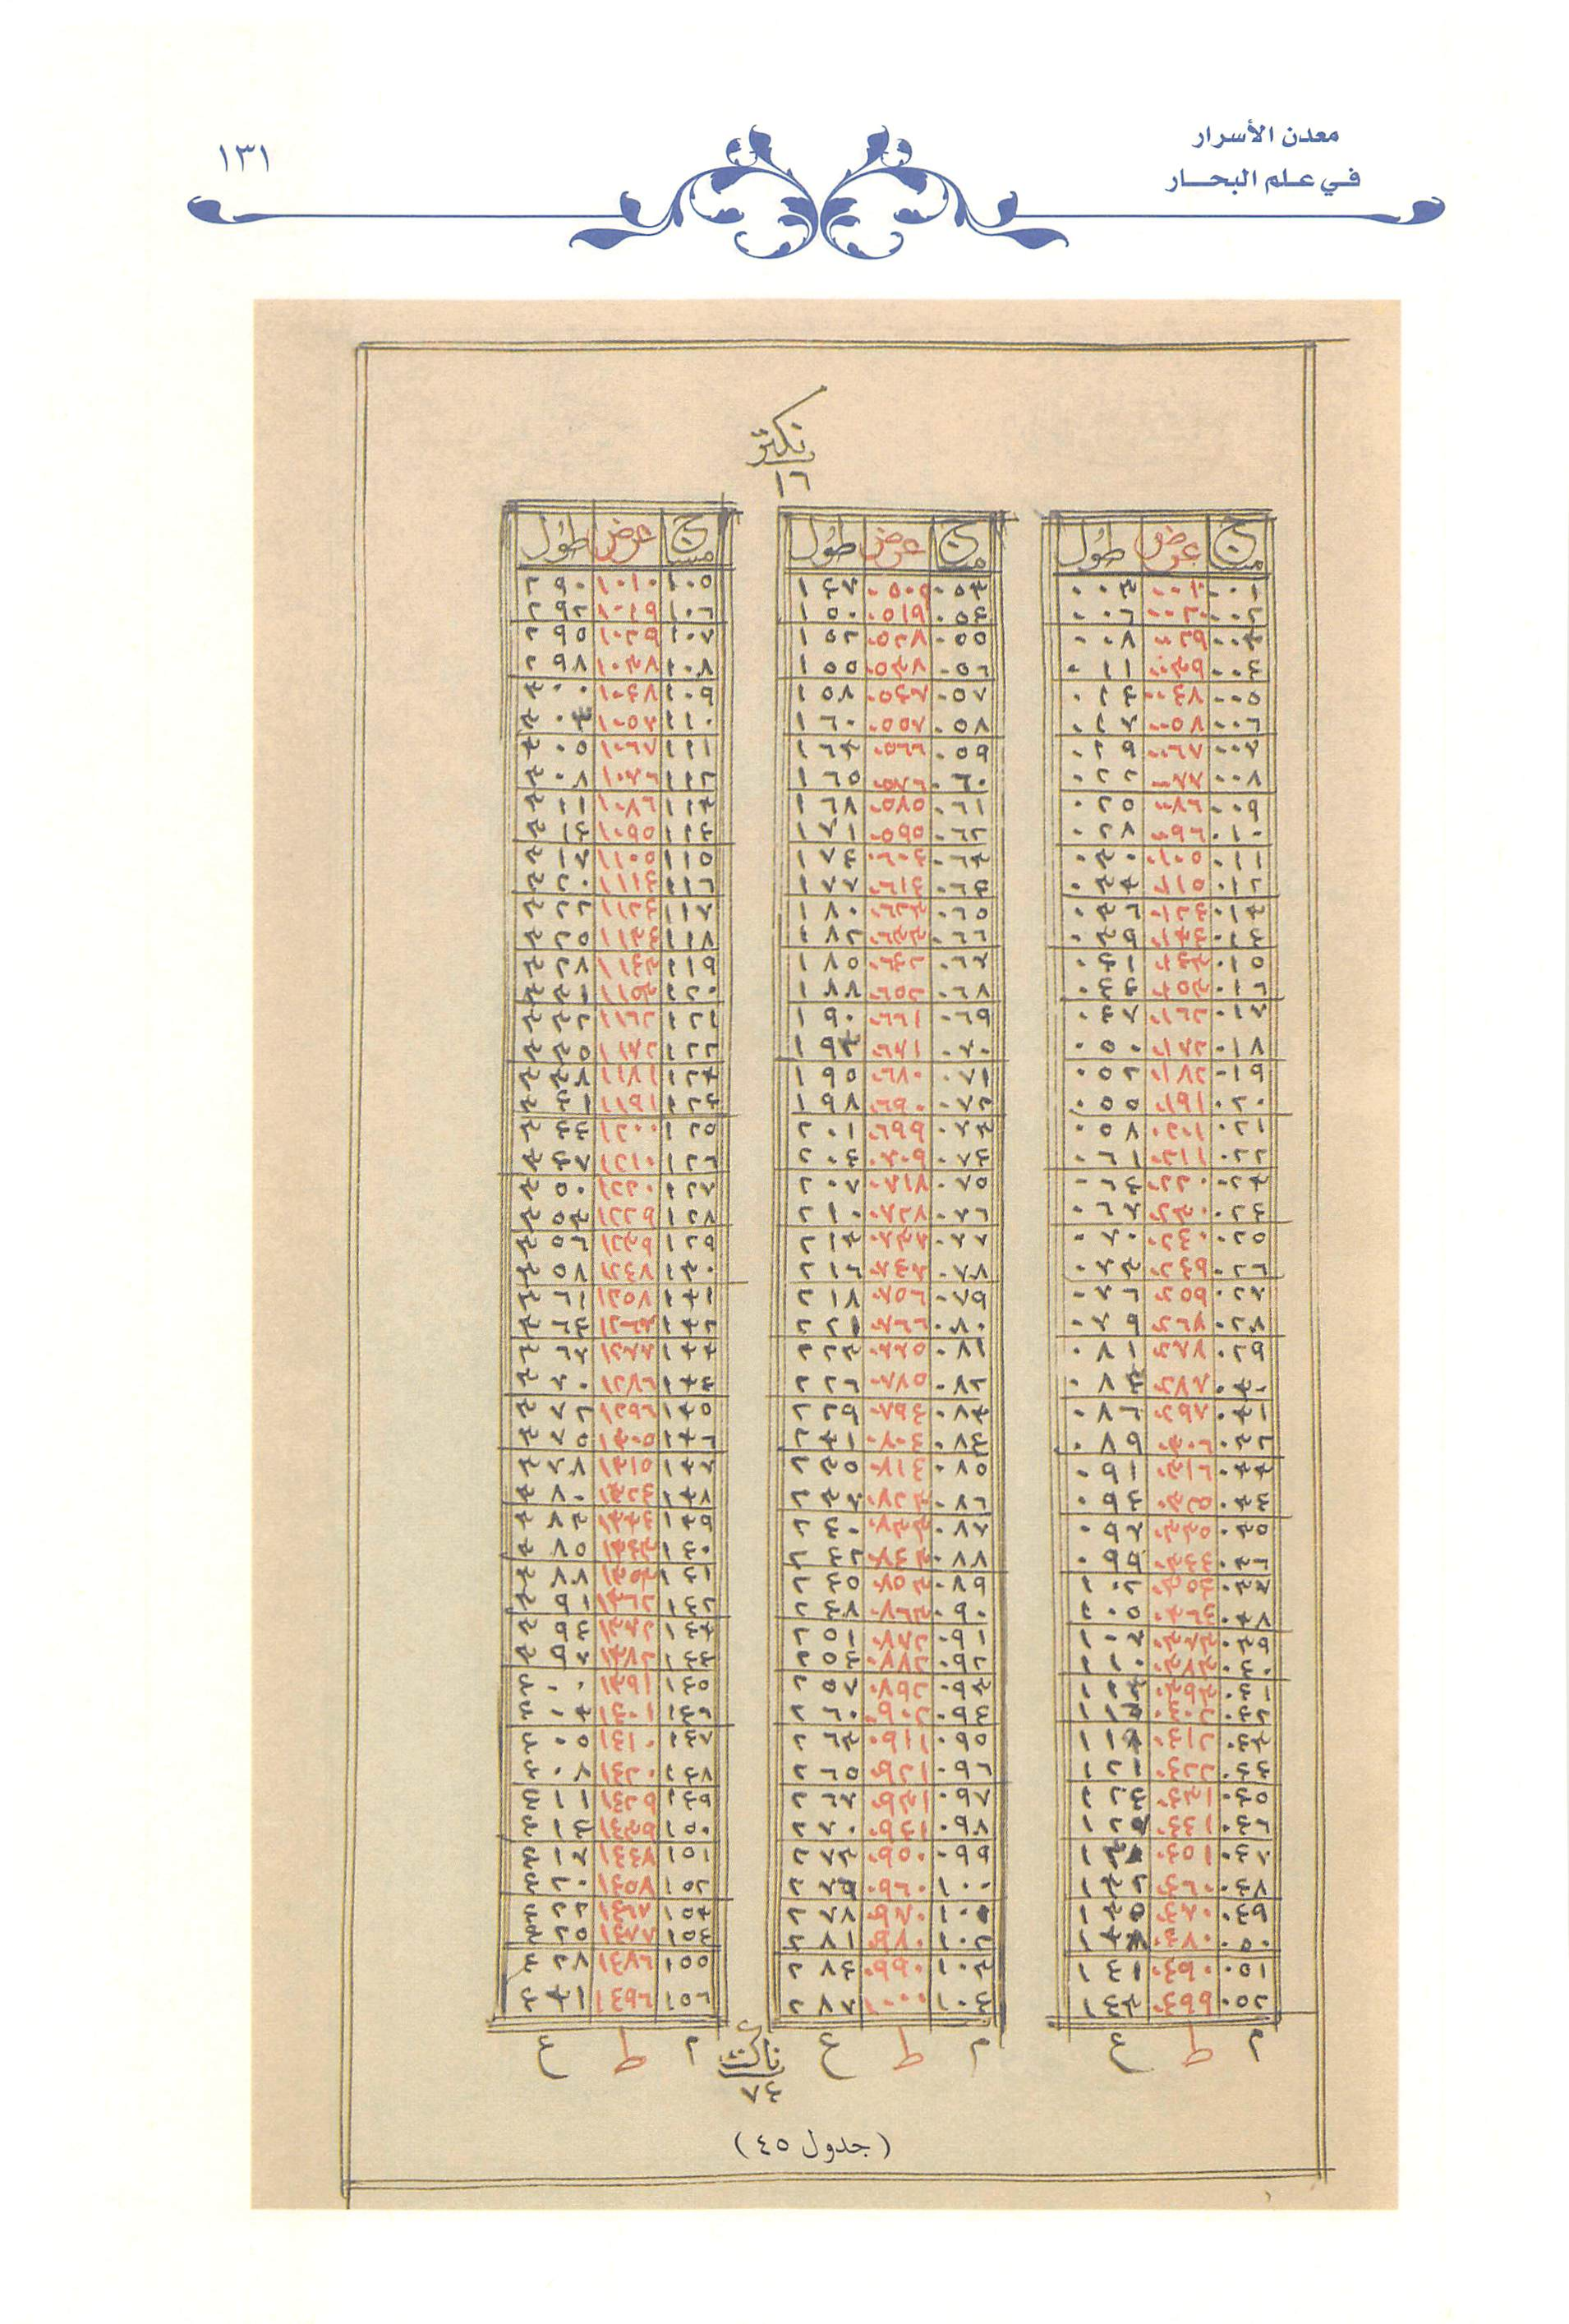 معدن الأسرار
في علم البحار
١٣١
نكتر
١٦
مساح عرض طول
٠٠١ ٠٠١٠ ٠٠٣
٠٠٢ ٠٠٢٠ ٠٠٦
٠٠٣ ٠٠٢٩ ٠٠٨
٠٠٤ ٠٠٣٩ ٠١١
٠٠٥ ٠٠٤٨ ٠١٤
٠٠٦ ٠٠٥٨ ٠١٧
٠٠٧ ٠٠٦٧ ٠١٩
٠٠٨ ٠٠٧٧ ٠٢٢
٠٠٩ ٠٠٨٦ ٠٢٥
٠١٠ ٠٠٩٦ ٠٢٨
٠١١ ٠١٠٥ ٠٣٠
٠١٢ ٠١١٥ ٠٣٣
٠١٣ ٠١٢٤ ٠٣٦
٠١٤ ٠١٣٤ ٠٣٩
٠١٥ ٠١٤٣ ٠٤١
٠١٦ ٠١٥٣ ٠٤٤
٠١٧ ٠١٦٢ ٠٤٧
٠١٨ ٠١٧٢ ٠٥٠
٠١٩ ٠١٨٢ ٠٥٢
٠٢٠ ٠١٩١ ٠٥٥
٠٢١ ٠٢٠١ ٠٥٨
٠٢٢ ٠٢١١ ٠٦١
٠٢٣ ٠٢٢٠ ٠٦٤
٠٢٤ ٠٢٣٠ ٠٦٧
٠٢٥ ٠٢٤٠ ٠٧٠
٠٢٦ ٠٢٤٩ ٠٧٣
٠٢٧ ٠٢٥٩ ٠٧٦
٠٢٨ ٠٢٦٨ ٠٧٩
٠٢٩ ٠٢٧٨ ٠٨١
٠٣٠ ٠٢٨٨ ٠٨٣
٠٣١ ٠٢٩٧ ٠٨٦
٠٣٢ ٠٣٠٦ ٠٨٩
٠٣٣ ٠٣١٦ ٠٩١
٠٣٤ ٠٣٢٥ ٠٩٤
٠٣٥ ٠٣٣٥ ٠٩٧
٠٣٦ ٠٣٤٤ ٠٩٩
٠٣٧ ٠٣٥٤ ١٠٢
٠٣٨ ٠٣٦٤ ١٠٥
٠٣٩ ٠٣٧٣ ١٠٧
٠٤٠ ٠٣٨٣ ١١٠
٠٤١ ٠٣٩٣ ١١٣
٠٤٢ ٠٤٠٢ ١١٥
٠٤٣ ٠٤١٢ ١١٨
٠٤٤ ٠٤٢٢ ١٢١
٠٤٥ ٠٤٣١ ١٢٤
٠٤٦ ٠٤٤١ ١٢٥
٠٤٧ ٠٤٥١
٠٤٨ ٠٤٦٠ ١٣٢
٠٤٩ ٠٤٧٠ ١٣٥
٠٥٠ ٠٤٨٠ ١٣٨
٠٥١ ٠٤٩٠ ١٤١
٠٥٢ ٠٤٩٩ ١٤٣
م ط ع
مساح عرض طول
٠٥٣ ٠٥٠٩ ١٤٧
٠٥٤ ٠٥١٩ ١٥٠
٠٥٥ ٠٥٢٨ ١٥٢
٠٥٦ ٠٥٣٨ ١٥٥
٠٥٧ ٠٥٤٧ ١٥٨
٠٥٨ ٠٥٥٧ ١٦٠
٠٥٩ ٠٥٦٦ ١٦٣
٠٦٠ ٠٥٧٦ ١٦٥
٠٦١ ٠٥٨٥ ١٦٨
٠٦٢ ٠٥٩٥ ١٧١
٠٦٣ ٠٦٠٤ ١٧٤
٠٦٤ ٠٦١٤ ١٧٧
٠٦٥ ٠٦٢٣ ١٨٠
٠٦٦ ٠٦٣٣ ١٨٢
٠٦٧ ٠٦٤٢ ١٨٥
٠٦٨ ٠٦٥٢ ١٨٨
٠٦٩ ٠٦٦١ ١٩٠
٠٧٠ ٠٦٧١ ١٩٣
٠٧١ ٠٦٨٠ ١٩٥
٠٧٢ ٠٦٩٠ ١٩٨
٠٧٣ ٠٦٩٩ ٢٠١
٠٧٤ ٠٧٠٩ ٢٠٤
٠٧٥ ٠٧١٨ ٢٠٧
٠٧٦ ٠٧٢٨ ٢١٠
٠٧٧ ٠٧٣٧ ٢١٣
٠٧٨ ٠٧٤٧ ٢١٦
٠٧٩ ٠٧٥٦ ٢١٨
٠٨٠ ٠٧٦٦ ٢٢١
٠٨١ ٠٧٧٥ ٢٢٤
٠٨٢ ٠٧٨٥ ٢٢٦
٠٨٣ ٠٧٩٤ ٢٢٩
٠٨٤ ٠٨٠٤ ٢٣١
٠٨٥ ٠٨١٤ ٢٣٥
٠٨٦ ٠٨٢٣ ٢٣٧
٠٨٧ ٠٨٣٣ ٢٤٠
٠٨٨ ٠٨٤٣ ٢٤٢
٠٨٩ ٠٨٥٣ ٢٤٥
٠٩٠ ٠٨٦٣ ٢٤٨
٠٩١ ٠٨٧٢ ٢٥١
٠٩٢ ٠٨٨٢ ٢٥٤
٠٩٣ ٠٨٩٢ ٢٥٧
٠٩٤ ٠٩٠٢ ٢٦٠
٠٩٥ ٠٩١١ ٢٦٣
٠٩٦ ٠٩٢١ ٢٦٥
٠٩٧ ٠٩٣١ ٢٦٧
٠٩٨ ٠٩٤١ ٢٧٠
٠٩٩ ٠٩٥٠ ٢٧٣
١٠٠ ٠٩٦٠ ٢٧٥
١٠١ ٠٩٧٠ ٢٧٨
١٠٢ ٠٩٨٠ ٢٨١
١٠٣ ٠٩٩٠ ٢٨٤
١٠٤ ١٠٠٠ ٢٨٧
م ط ع
مساح عرض طول
١٠٥ ١٠١٠ ٢٩٠
١٠٦ ١٠١٩ ٢٩٢
١٠٧ ١٠٢٩ ٢٩٥
١٠٨ ١٠٣٨ ٢٩٨
١٠٩ ١٠٤٨ ٣٠٠
١١٠ ١٠٥٧ ٣٠٣
١١١ ١٠٦٧ ٣٠٥
١١٢ ١٠٧٦ ٣٠٨
١١٣ ١٠٨٦ ٣١١
١١٤ ١٠٩٥ ٣١٤
١١٥ ١١٠٥ ٣١٧
١١٦ ١١١٤ ٣٢٠
١١٧ ١١٢٤ ٣٢٢
١١٨ ١١٣٤ ٣٢٥
١١٩ ١١٤٣ ٣٢٨
١٢٠ ١١٥٣ ٣٣١
١٢١ ١١٦٢ ٣٣٢
١٢٢ ١١٧٢ ٣٣٥
١٢٣ ١١٨١ ٣٣٨
١٢٤ ١١٩١ ٣٤١
١٢٥ ١٢٠٠ ٣٤٤
١٢٦ ١٢١٠ ٣٤٧
١٢٧ ١٢٢٠ ٣٥٠
١٢٨ ١٢٢٩ ٣٥٣
١٢٩ ١٢٣٩ ٣٥٦
١٣٠ ١٢٤٧ ٣٥٨
١٣١ ١٢٥٨ ٣٦١
١٣٢ ١٢٦٧ ٣٦٤
١٣٣ ١٢٧٧ ٣٦٧
١٣٤ ١٢٨٦ ٣٧٠
١٣٥ ١٢٩٦ ٣٧٢
١٣٦ ١٣٠٥ ٣٧٥
١٣٧ ١٣١٥ ٣٧٨
١٣٨ ١٣٢٤ ٣٨٠
١٣٩ ١٣٣٤ ٣٨٣
١٤٠ ١٣٤٣ ٣٨٥
١٤١ ١٣٥٣ ٣٨٨
١٤٢ ١٣٦٢ ٣٩١
١٤٣ ١٣٧٢ ٣٩٤
١٤٤ ١٣٨٢ ٣٩٧
١٤٥ ١٣٩١ ٤٠٠
١٤٦ ١٤٠١ ٤٠٣
١٤٧ ١٤١٠ ٤٠٥
١٤٨ ١٤٢٠ ٤٠٨
١٤٩ ١٤٢٩ ٤١١
١٥٠ ١٤٣٩ ٤١٤
١٥١ ١٤٤٨ ٤١٧
١٥٢ ١٤٥٨ ٤٢٠
١٥٣ ١٤٦٨ ٤٢٢
١٥٤ ١٤٧٧ ٤٢٥
١٥٥ ١٤٨٦ ٤٢٨
١٥٦ ١٤٩٦ ٤٣١
م ط ع
ناكت
٧٤
(جدول ٤٥)